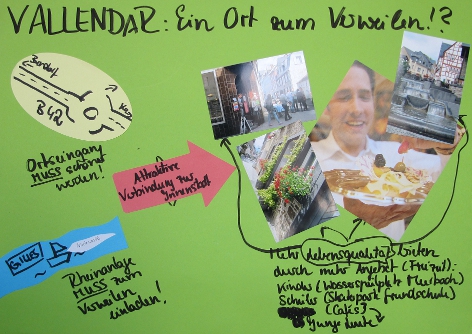 VALLENDAR: Ein Ort zum Verweilen!?
B42
Ortseingang
MUSS schöner
werden!
Attraktive
Verbindung zur
Innenstadt
GILLES
Rheinanlage
MUSS zum
Verweilen
einladen!
Mehr Lebensqualität bieten
durch mehr Angebot (Freizeit):
Kinder (Wasserspielplatz Meerbach)
Schüler (Skatepark
(Cafés)
Junge Leute